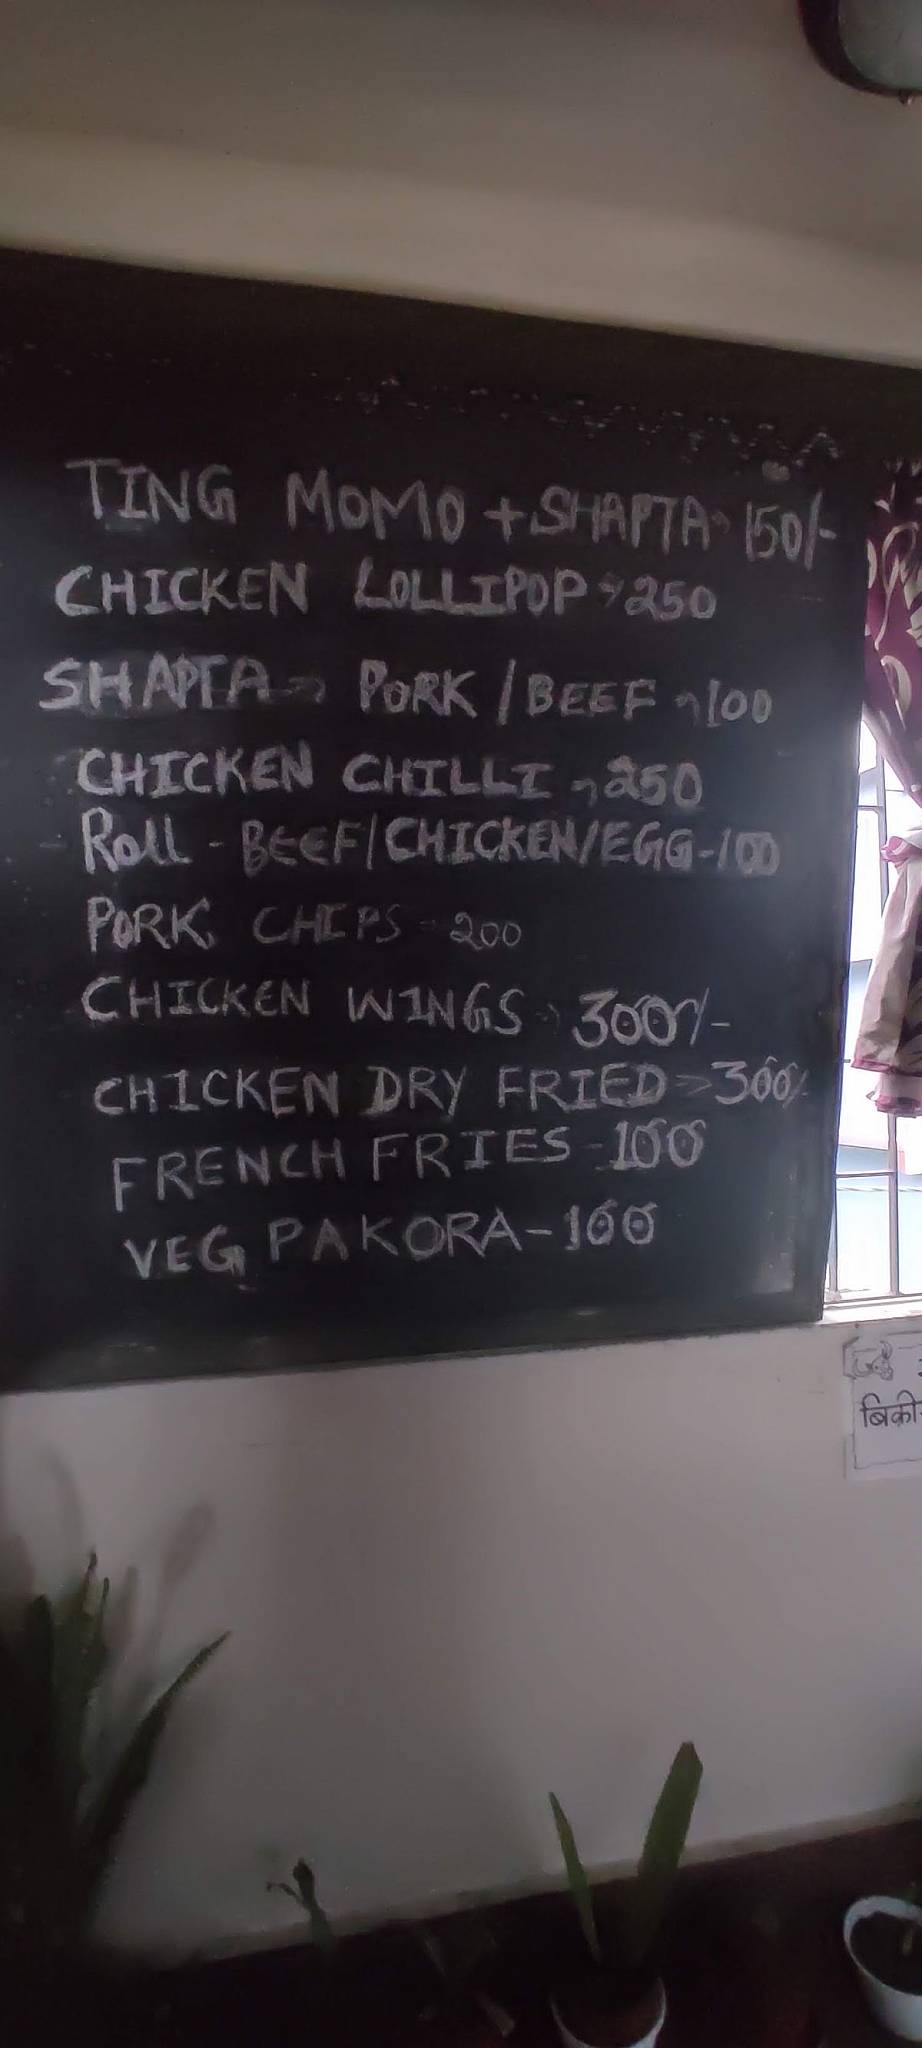 TING MOMO + SHAPTA → 150/-
CHICKEN LOLLIPOP → 250
SHAPTA → PORK / BEEF → 100
CHICKEN CHILLI → 250
Roll - BEEF/CHICKEN/EGG - 100
PORK CHIPS - 200
CHICKEN WINGS → 300/-
CHICKEN DRY FRIED → 300/-
FRENCH FRIES - 100
VEG PAKORA - 100